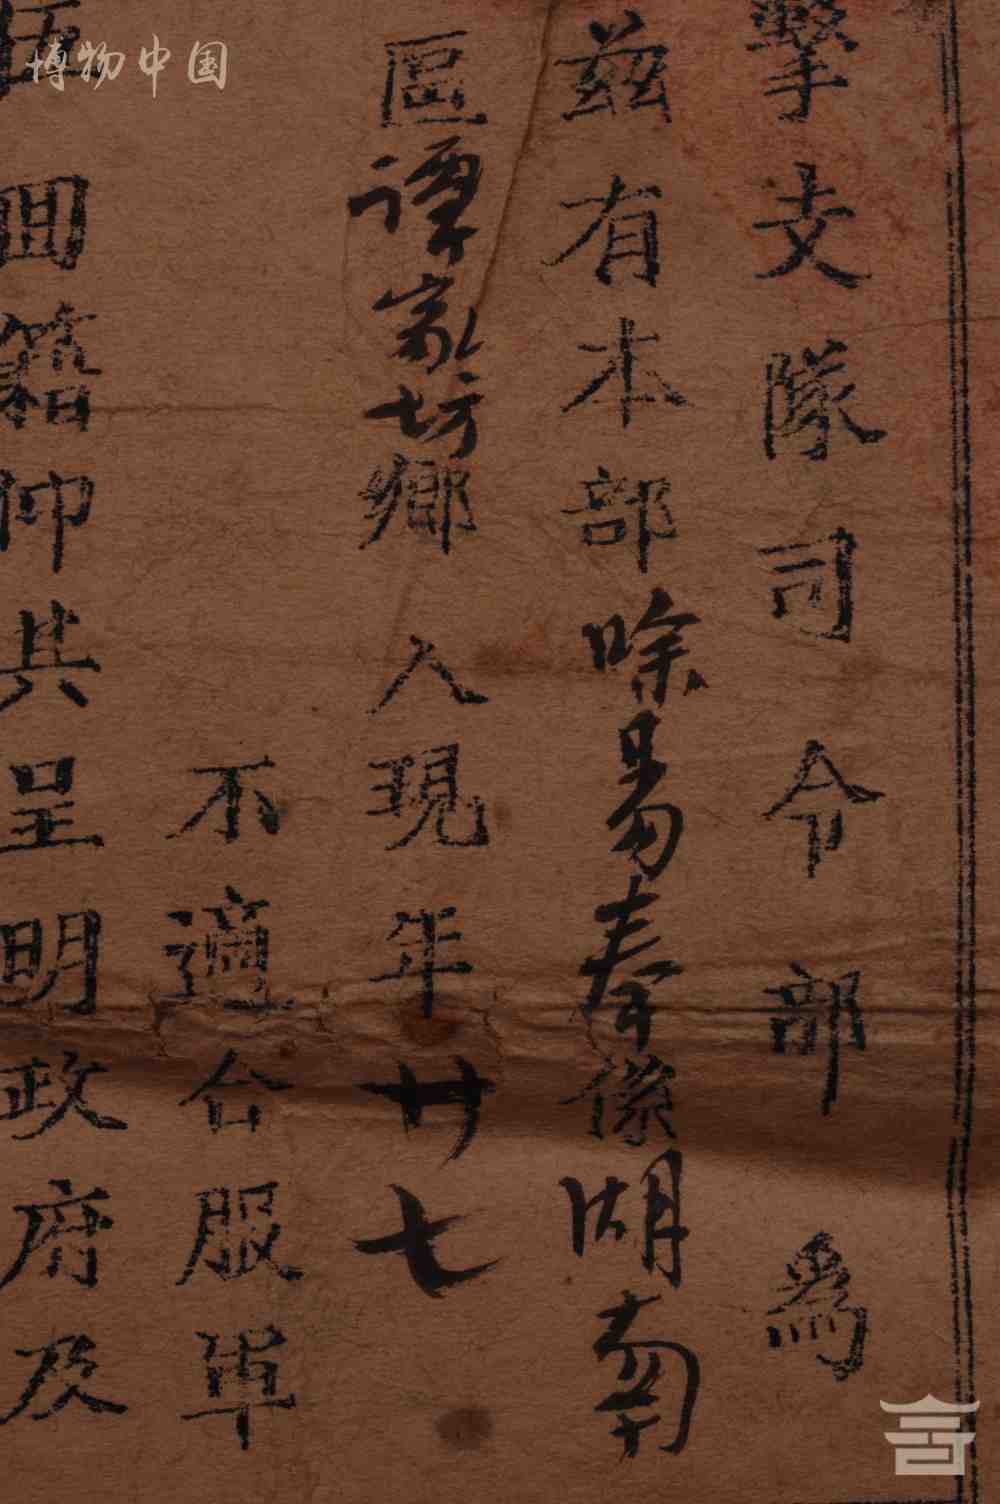 博物中国
擊支隊司令部 為
茲有本部喰易奉係湖南
區譚家坊鄉 人現年廿七
不適合服軍
伍回籍仰其呈明政府及